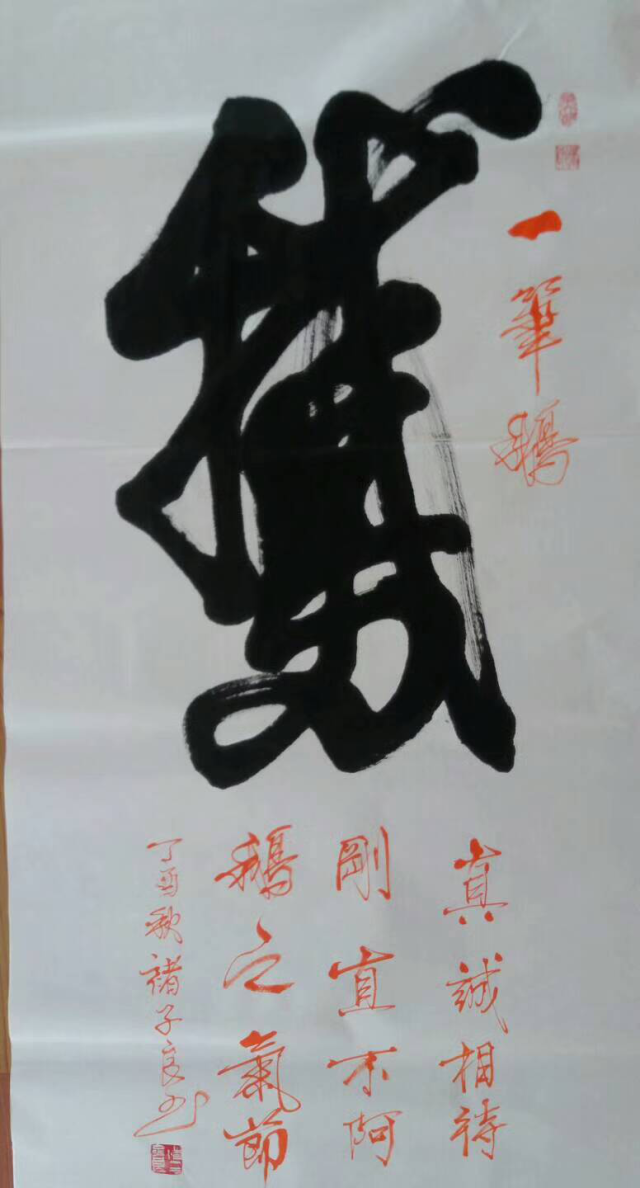 鵝
一筆鵝
真誠相待
剛直不阿
鵝之氣節
丁酉秋褚子良书